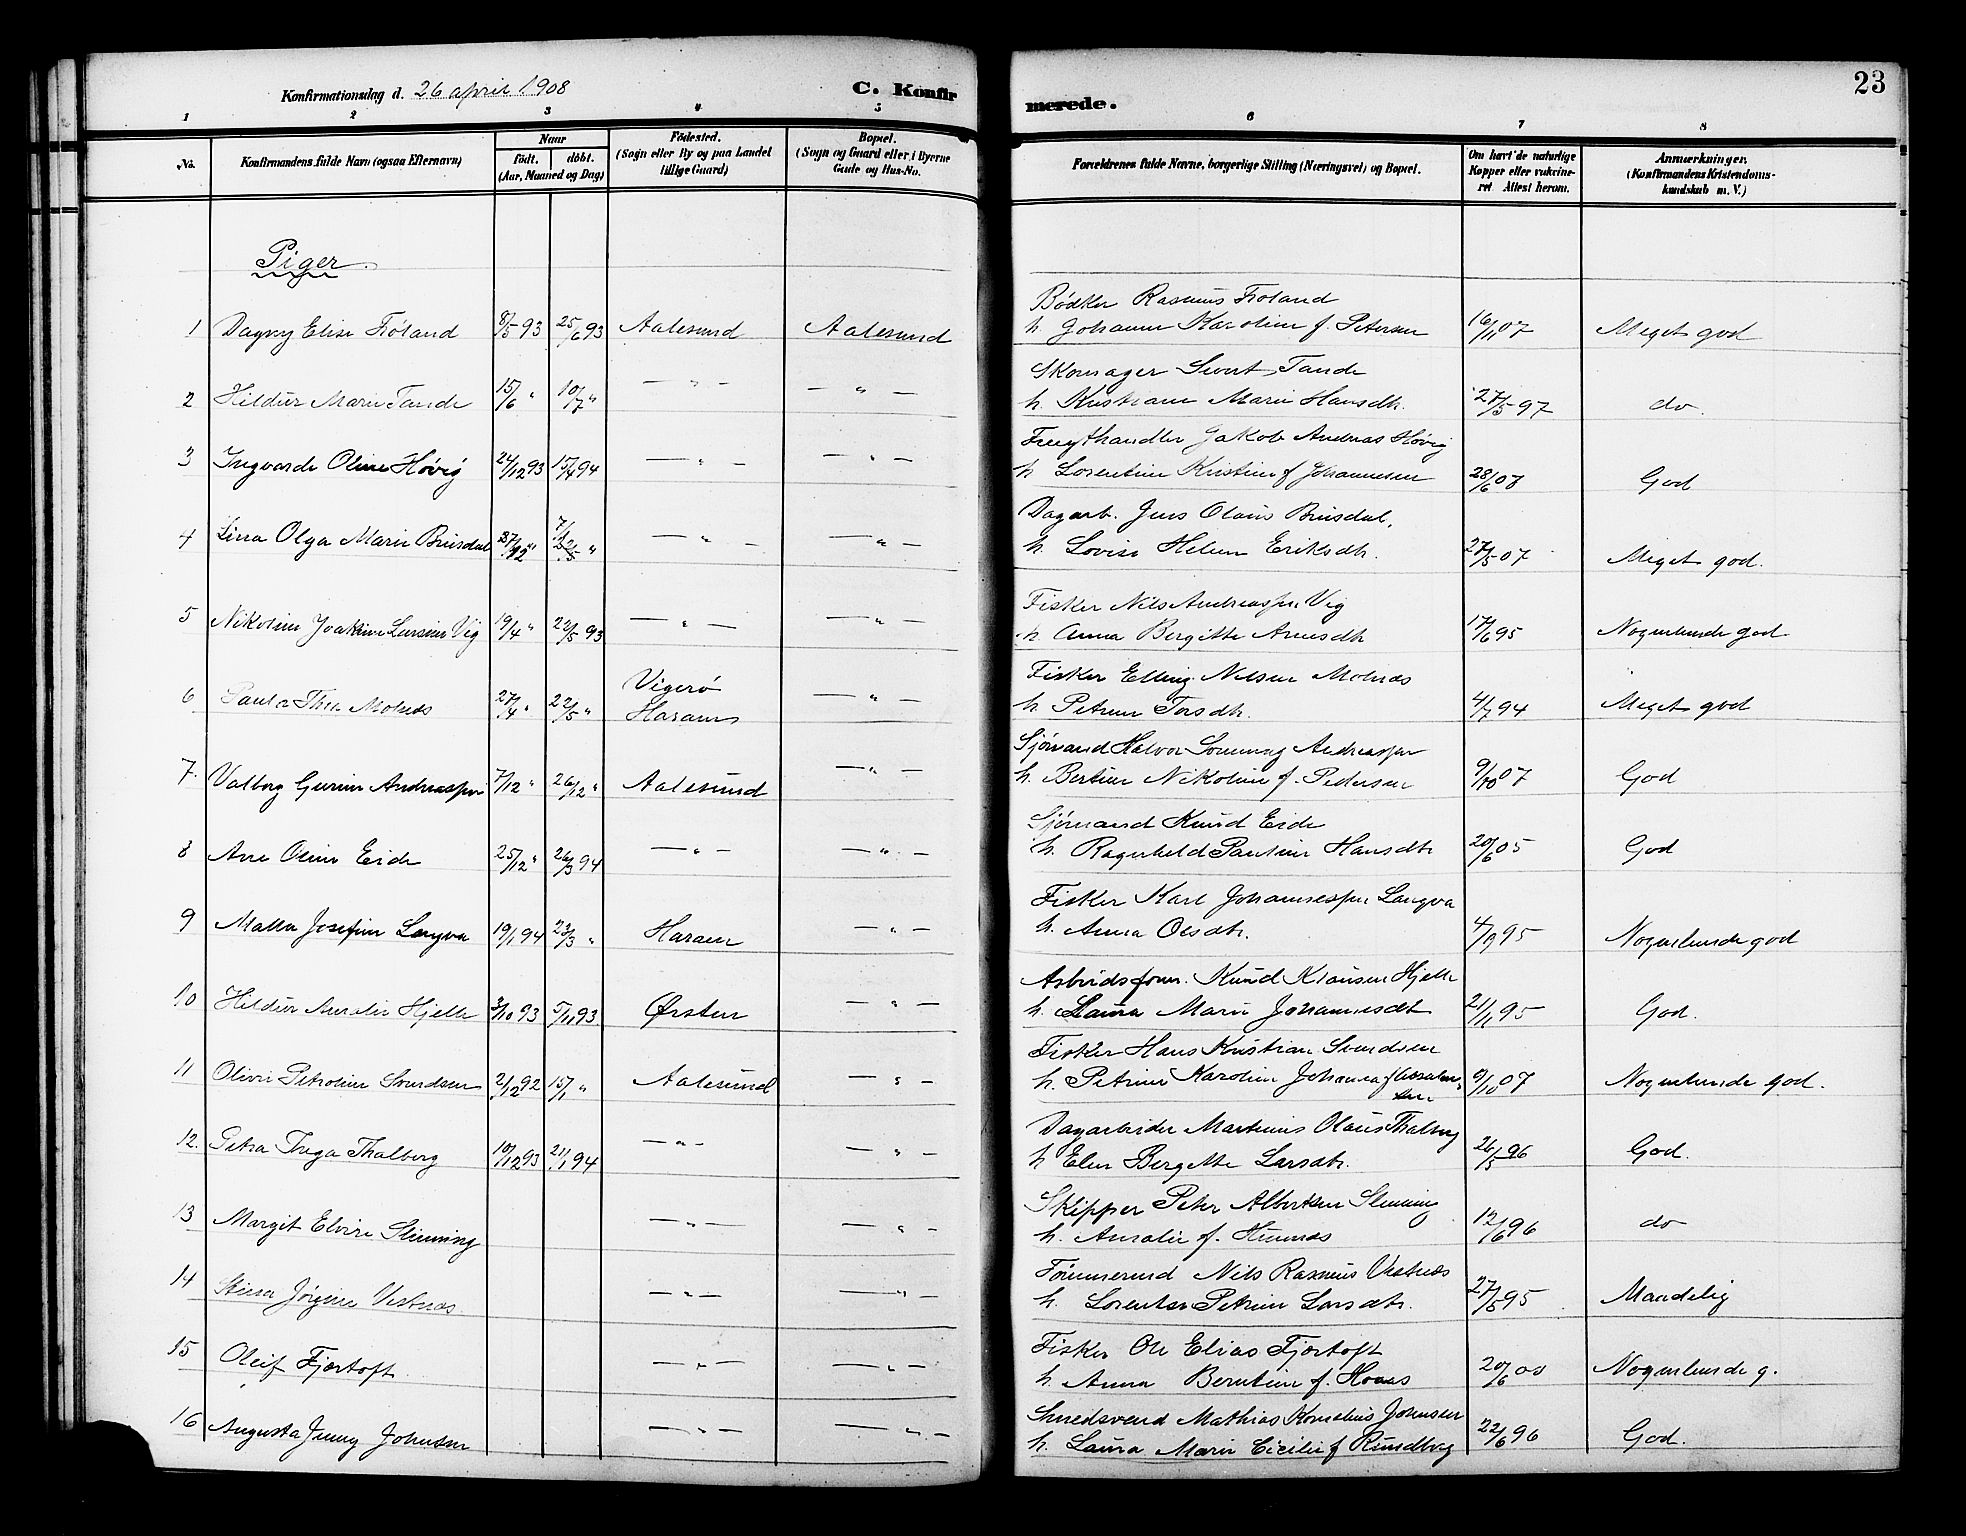 Konfirmationsdag d. 26 april 1908
C. Konfir
merede.
23
1 2 3 4 5 6 7 8
No.
Konfirmandens fulde Navn (ogsaa Efternavn)
Naar
født. døbt.
(Aar, Maaned og Dag)
Fødested.
(Sogn eller By og paa Landet
tillige Gaard)
Bopæl.
(Sogn og Gaard eller i Byerne
Gade og Hus-No.
Forældrenes fulde Navne, borgerlige Stilling (Næringsvei) og Bopæl.
Om havt de naturlige
Kopper eller vakcine-
ret. Attest herom.
Anmærkninger.
(Konfirmandens Kristendoms-
kundskab m. V.)
Piger.
Bødker Rasmus Frøland
1 Dagny Elise Frøland 8/5 93 25/6 93 Aalesund Aalesund h. Johanne Karoline f. Petersen 16/11 07 Meget god
Skomager Sivert Tande
2 Hildur Marie Tande 15/6 " 10/7 " — " — — " — h. Kristiane Marie Hansdtr. 27/5 97 do.
Jakob Andreas Høvig
3 Ingvarda Oline Høvig 24/12 93 15/4 94 — " — — " — h. Lorentine Kristine f. Johannesen 28/6 08 God
Dagarb. Jens Olaus Brusdal,
4 Olga Marie Brusdal — " — — " — h. Lovise Helene Eriksdtr. 27/5 07 Meget god.
Fisker Nils Andreassen Vig
5 Nikoline Joakime Vig 19/4 " 22/5 93 — " — — " — h. Anna Bergitte Arnesdtr 17/6 95 Nogenlunde god
Fisker Elling Nilsen Molnæs
6 Paula Thea Molnæs 27/4 " 22/5 " Vigerø Haram — " — h. Petrine Torsdtr. 4/7 94 Meget god
Sjømand Halvor Andreassen
7. Valborg Gurine Andreassen 7/12 " 26/12 " Aalesund — " — h. Bertine Nikoline f. Pedersen 9/10 07 God
Sjømand Knud Eide
8 Ane Oline Eide 25/12 " 26/3 94 — " — — " — h. Ragnhild Pauline Hansdtr 20/6 05 God
Fisker Karl Johannessen Langva
9 Malla Josefine Langva 19/1 94 23/3 " Haram — " — h. Anna Olsdtr. 4/9 95 Nogenlunde god
Arbeidsform. Knud Klausen Hjelle
10 Hildur Amalie Hjelle 3/10 93 5/11 93 Ørsten — " — h. Laura Marie Johannesdtr 21/11 95 God.
Fisker Hans Kristian Svendsen
11 Olivie Petroline Svendsen 2/12 92 15/1 " Aalesund — " — h. Petrine Karoline Johanna f. 9/10 07 Nogenlunde god.
Dagarbeider Martinus Olaus Thalberg
12. Petra Thalberg 10/12 93 21/1 94 — " — — " — h. Elen Bergitte Larsdtr. 26/5 96 God.
Skipper Peter Albertsen Slinning
13 Margit Elvire Slinning — " — — " — h. Amalie f. 12/6 96 do
Tømmermd Nils Rasmus Vestnæs
14 Jørgine Vestnæs. — " — — " — h. Lorentse Petrine Larsdtr. 27/5 95 Maadelig
Fisker Ole Elias Fjørtoft
15 Oleif Fjørtoft. — " — — " — h. Anna Berntine f. 20/6 00 Nogenlunde g.
Smedsvend Mathias Kornelius Johnsen
16 Augusta Jenny Johnsen — " — — " — h. Laura Marie Cicilie f. Rundberg 22/6 96 God.